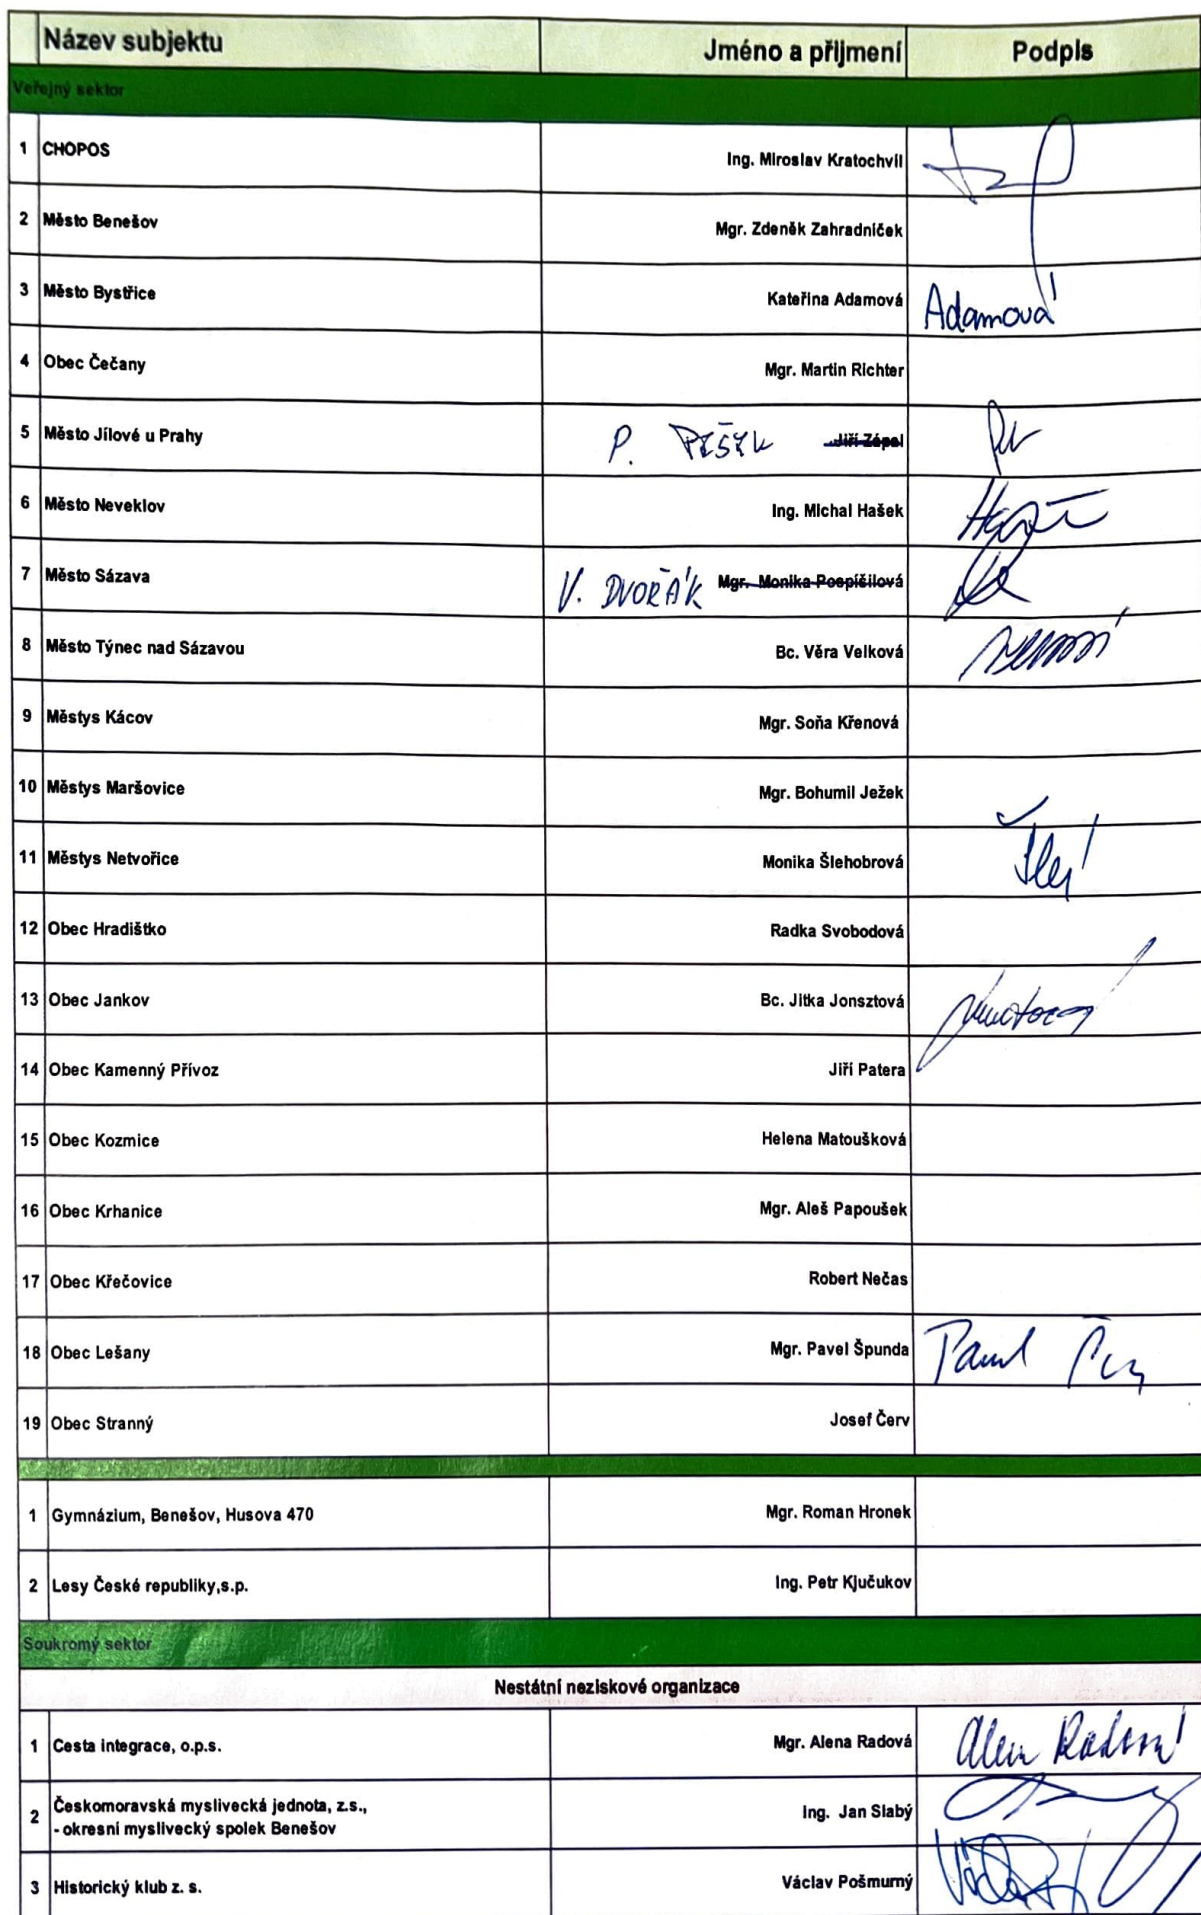 Název subjektu Jméno a příjmení Podpis
Veřejný sektor
1 CHOPOS Ing. Miroslav Kratochvíl
2 Město Benešov Mgr. Zdeněk Zahradníček
3 Město Bystřice Kateřina Adamová Adamová
4 Obec Čečany Mgr. Martin Richter
5 Město Jílové u Prahy P. PEŠEK Jiří Zápal
6 Město Neveklov Ing. Michal Hašek
7 Město Sázava V. DVOŘÁK Mgr. Monika Pospíšilová
8 Město Týnec nad Sázavou Bc. Věra Velková
9 Městys Kácov Mgr. Soňa Křenová
10 Městys Maršovice Mgr. Bohumil Ježek
11 Městys Netvořice Monika Šlehobrová
12 Obec Hradištko Radka Svobodová
13 Obec Jankov Bc. Jitka Jonsztová
14 Obec Kamenný Přívoz Jiří Patera
15 Obec Kozmice Helena Matoušková
16 Obec Krhanice Mgr. Aleš Papoušek
17 Obec Křečovice Robert Nečas
18 Obec Lešany Mgr. Pavel Špunda Pavel
19 Obec Stranný Josef Červ
1 Gymnázium, Benešov, Husova 470 Mgr. Roman Hronek
2 Lesy České republiky,s.p. Ing. Petr Kjučukov
Soukromý sektor
Nestátní neziskové organizace
1 Cesta integrace, o.p.s. Mgr. Alena Radová Alena Radová
2 Českomoravská myslivecká jednota, z.s.,
- okresní myslivecký spolek Benešov Ing. Jan Slabý
3 Historický klub z. s. Václav Pošmurný